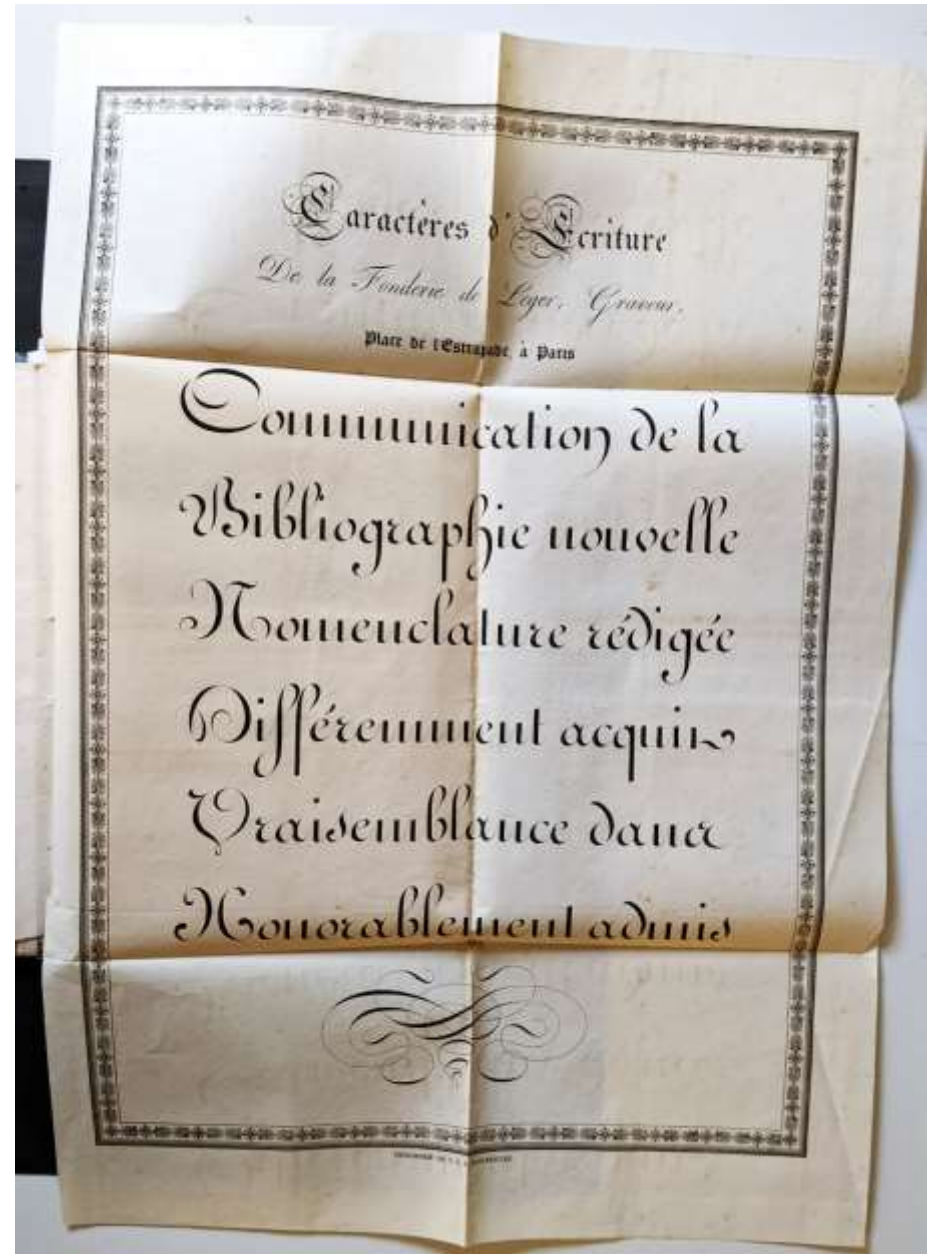 Caractères d'Ecriture
De la Fonderie de Léger, Graveur,
Place de l'Estrapade, à Paris
Communication de la
Bibliographie nouvelle
Nomenclature rédigée
Différemment acquis
Vraisemblance dans
Honorablement admis